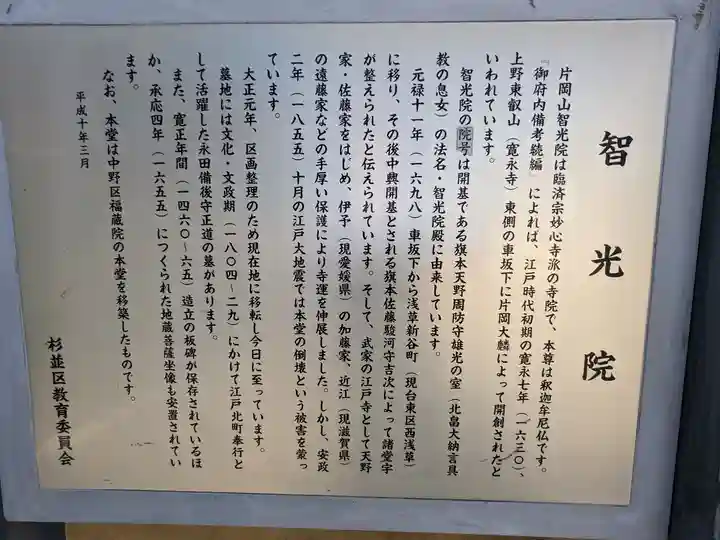 智光院
片岡山智光院は臨済宗妙心寺派の寺院で、本尊は釈迦牟尼仏です。
『御府内備考続編』によれば、江戸時代初期の寛永七年（一六三〇）、
上野東叡山（寛永寺）東側の車坂下に片岡大麟によって開創されたと
いわれています。
智光院の院号は開基である旗本天野周防守雄光の室（北畠大納言具
教の息女）の法名・智光院殿に由来しています。
元禄十一年（一六九八）車坂下から浅草新谷町（現台東区西浅草）
に移り、その後中興開基とされる旗本佐藤駿河守吉次によって諸堂宇
が整えられたと伝えられています。そして、武家の江戸寺として天野
家・佐藤家をはじめ、伊予（現愛媛県）の加藤家、近江（現滋賀県）
の遠藤家などの手厚い保護により寺運を伸展しました。しかし、安政
二年（一八五五）十月の江戸大地震では本堂の倒壊という被害を蒙っ
ています。
大正元年、区画整理のため現在地に移転し今日に至っています。
墓地には文化・文政期（一八〇四～二九）にかけて江戸北町奉行と
して活躍した永田備後守正道の墓があります。
また、寛正年間（一四六〇～六五）造立の板碑が保存されているほ
か、承応四年（一六五五）につくられた地蔵菩薩坐像も安置されてい
ます。
なお、本堂は中野区福蔵院の本堂を移築したものです。
平成十年三月
杉並区教育委員会